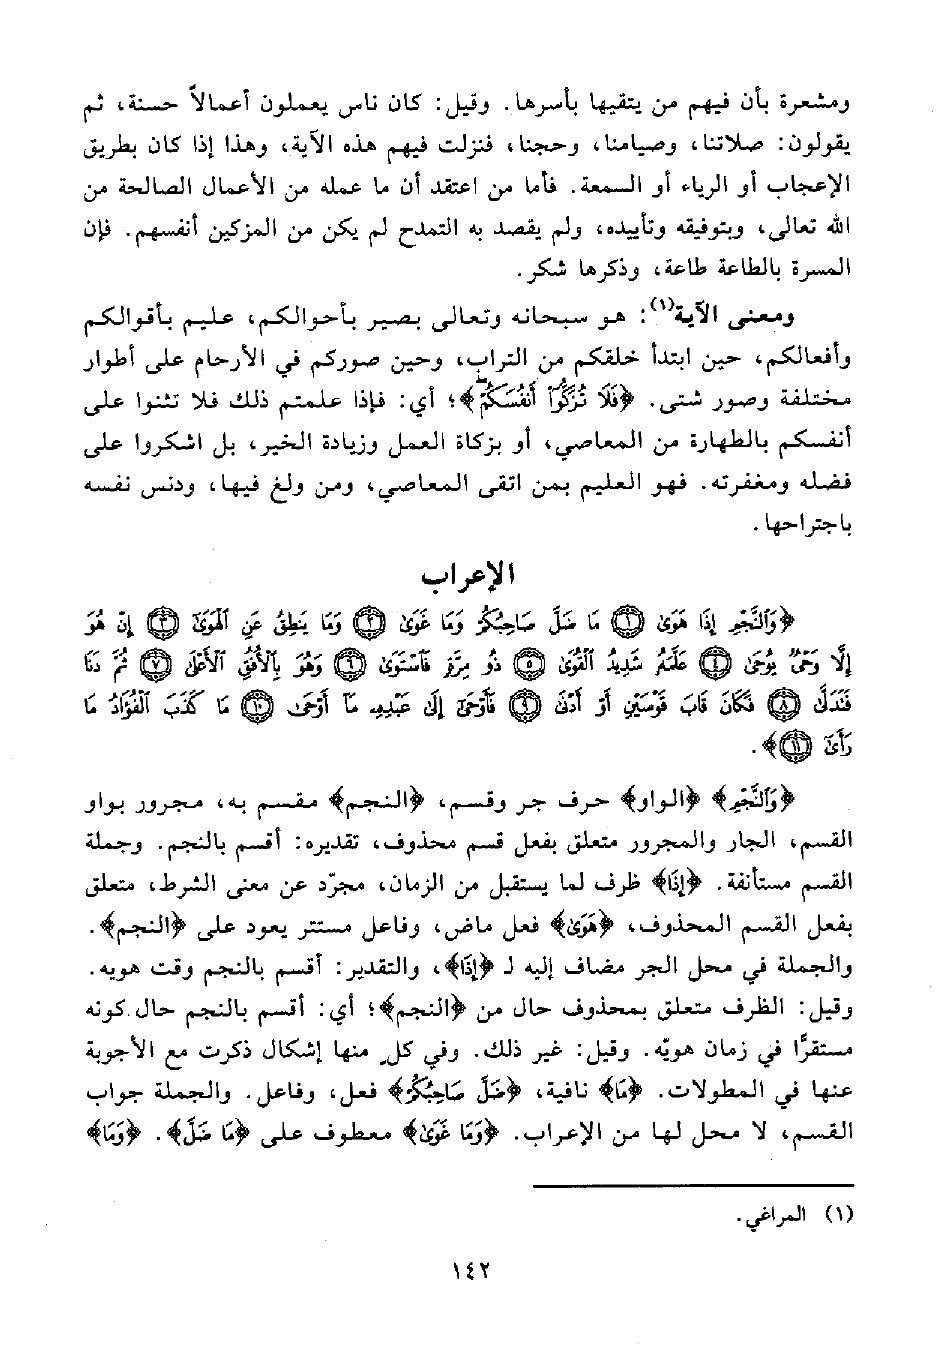 ومشعرة بأن فيهم من يتقيها بأسرها. وقيل: كان ناس يعملون أعمالاً حسنة، ثم
يقولون: صلاتنا، وصيامنا، وحجنا، فنزلت فيهم هذه الآية، وهذا إذا كان بطريق
الإعجاب أو الرياء أو السمعة. فأما من اعتقد أن ما عمله من الأعمال الصالحة من
الله تعالى، وبتوفيقه وتأييده، ولم يقصد به التمدح لم يكن من المزكين أنفسهم. فإن
المسرة بالطاعة طاعة، وذكرها شكر.
ومعنى الآية(١): هو سبحانه وتعالى بصير بأحوالكم، عليم بأقوالكم
وأفعالكم، حين ابتدأ خلقكم من التراب، وحين صوركم في الأرحام على أطوار
مختلفة وصور شتى. ﴿فَلَا تُزَكُّوٓا۟ أَنفُسَكُمْ ۖ﴾؛ أي: فإذا علمتم ذلك فلا تثنوا على
أنفسكم بالطهارة من المعاصي، أو بزكاة العمل وزيادة الخير، بل اشكروا على
فضله ومغفرته. فهو العليم بمن اتقى المعاصي، ومن ولغ فيها، ودنس نفسه
باجتراحها.
الإعراب
﴿وَٱلنَّجْمِ إِذَا هَوَىٰ ١ مَا ضَلَّ صَاحِبُكُمْ وَمَا غَوَىٰ ٢ وَمَا يَنطِقُ عَنِ ٱلْهَوَىٰٓ ٣ إِنْ هُوَ
إِلَّا وَحْىٌ يُوحَىٰ ٤ عَلَّمَهُۥ شَدِيدُ ٱلْقُوَىٰ ٥ ذُو مِرَّةٍ فَٱسْتَوَىٰ ٦ وَهُوَ بِٱلْأُفُقِ ٱلْأَعْلَىٰ ٧ ثُمَّ دَنَا
فَتَدَلَّىٰ ٨ فَكَانَ قَابَ قَوْسَيْنِ أَوْ أَدْنَىٰ ٩ فَأَوْحَىٰٓ إِلَىٰ عَبْدِهِۦ مَآ أَوْحَىٰ ١٠ مَا كَذَبَ ٱلْفُؤَادُ مَا
رَأَىٰٓ ١١﴾.
﴿وَٱلنَّجْمِ﴾ ﴿الواو﴾ حرف جر وقسم، ﴿النجم﴾ مقسم به، مجرور بواو
القسم، الجار والمجرور متعلق بفعل قسم محذوف، تقديره: أقسم بالنجم. وجملة
القسم مستأنفة. ﴿إِذَا﴾ ظرف لما يستقبل من الزمان، مجرّد عن معنى الشرط، متعلق
بفعل القسم المحذوف، ﴿هَوَىٰ﴾ فعل ماض، وفاعل مستتر يعود على ﴿النجم﴾.
والجملة في محل الجر مضاف إليه لـ ﴿إِذَا﴾، والتقدير: أقسم بالنجم وقت هويه.
وقيل: الظرف متعلق بمحذوف حال من ﴿النجم﴾؛ أي: أقسم بالنجم حال كونه
مستقرًا في زمان هويّه. وقيل: غير ذلك. وفي كل منها إشكال ذكرت مع الأجوبة
عنها في المطولات. ﴿مَا﴾ نافية، ﴿ضَلَّ صَاحِبُكُمْ﴾ فعل، وفاعل. والجملة جواب
القسم، لا محل لها من الإعراب. ﴿وَمَا غَوَىٰ﴾ معطوف على ﴿مَا ضَلَّ﴾. ﴿وَمَا﴾
(١) المراغي.
١٤٢